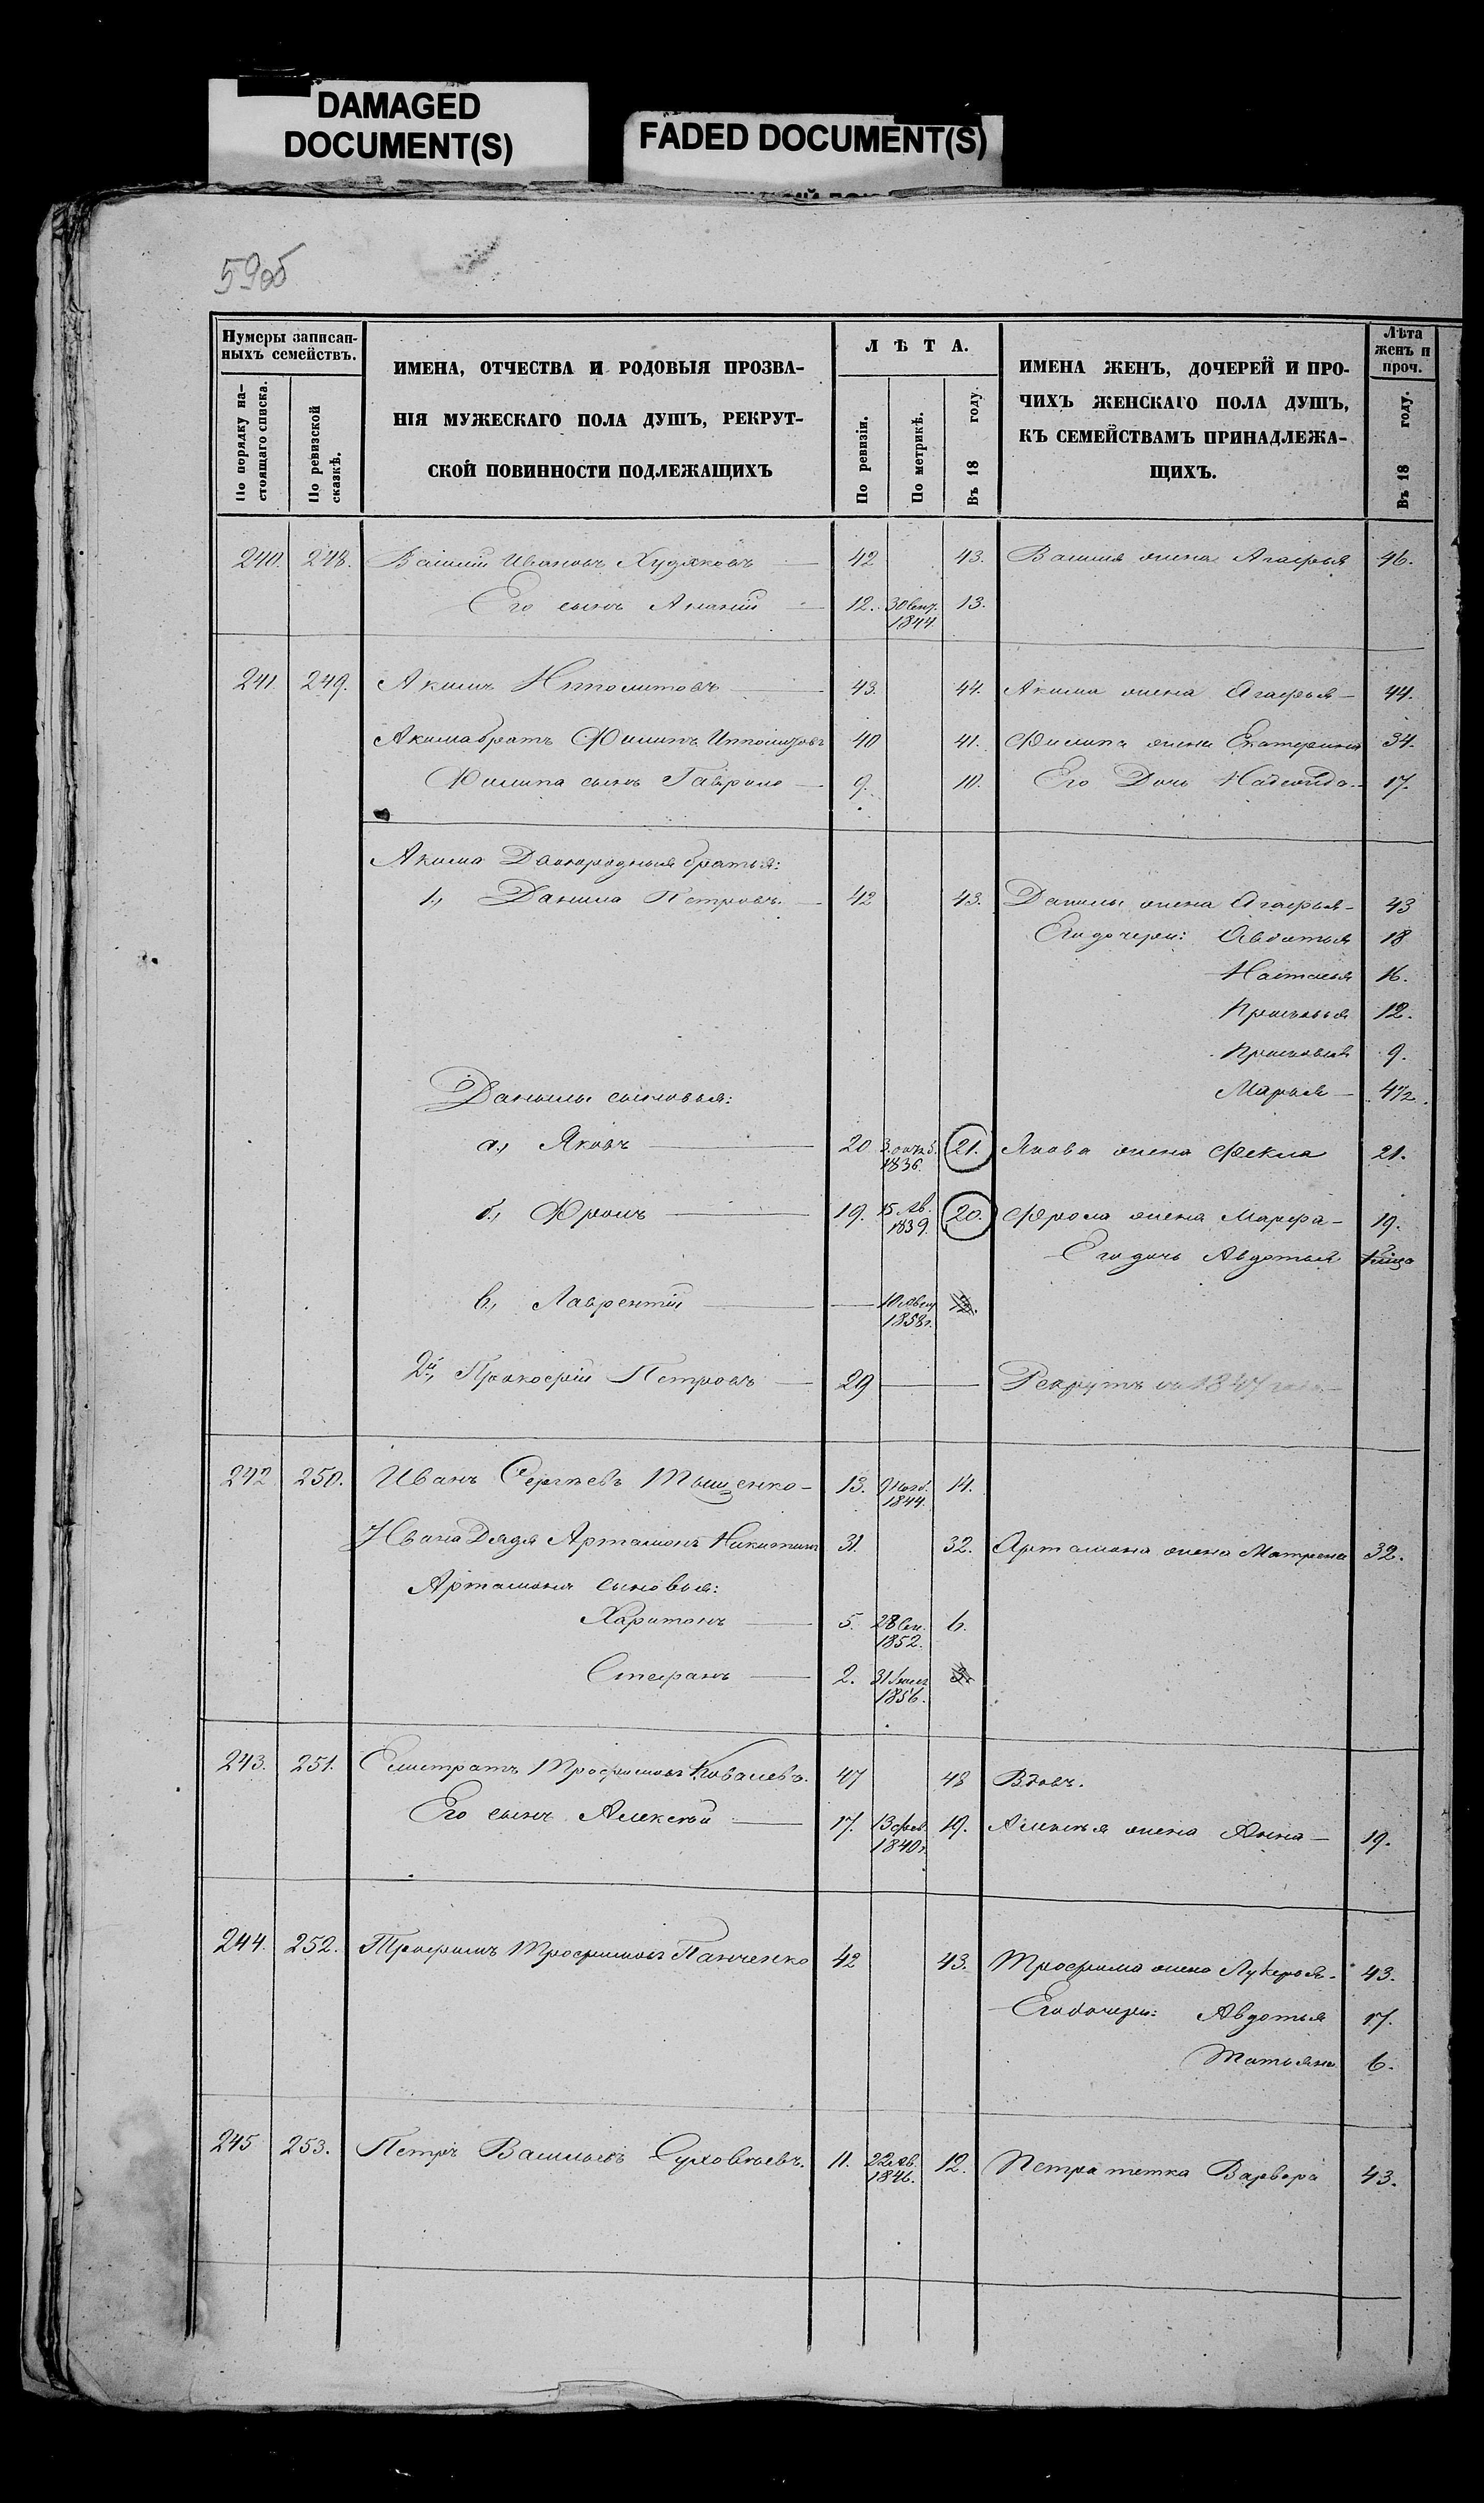 DAMAGED
DOCUMENT(S)
FADED DOCUMENT(S)
59об
Нумеры записан-
ныхъ семействъ.
По порядку на-
стоящаго списка.
По ревизской
сказкѣ.
ИМЕНА, ОТЧЕСТВА И РОДОВЫЯ ПРОЗВА-
НІЯ МУЖЕСКАГО ПОЛА ДУШЪ, РЕКРУТ-
СКОЙ ПОВИННОСТИ ПОДЛЕЖАЩИХЪ
ЛѢТА.
По ревизіи.
По метрикѣ.
Въ 18 году.
ИМЕНА ЖЕНЪ, ДОЧЕРЕЙ И ПРО-
ЧИХЪ ЖЕНСКАГО ПОЛА ДУШЪ,
КЪ СЕМЕЙСТВАМЪ ПРИНАДЛЕЖА-
ЩИХЪ.
Лѣта
женъ и
проч.
Въ 18 году.
240. 248. Ивановъ Худяковъ 42 43. жена Агафья 46.
Его сынъ Ананій 12. 30 Сент. 1844 13.
241 249. Акимъ Ипполитовъ 43. 44. Акима жена Агафья 44.
Акима братъ Филипъ Ипполитовъ 40 41. Филипа жена Екатерина 34.
Филипа сынъ Гаврило 9. 10. Его Дочь Надежда 17.
Акима Двоюродныя братья:
1., Данила Петровъ. 42 43. Данилы жена Агафья 43
Его дочери: Авдотья 18
Наталья 16.
Прасковья 12.
Прасковья 9.
Марья 4 1/2
Данилы сыновья:
а., Яковъ 20 3. октяб. 1836. 21. Якова жена Фекла 21.
б., Фролъ 19. 15 Ав. 1839. 20. Фрола жена Марфа 19.
Его дочь Авдотья
в., Лаврентій 1858 г.
2й, Прокофій Петровъ 29 Рекрутъ съ 1847 года
242 250. Иванъ Сергѣевъ Тыщенко 13. 9 Нояб. 1844. 14.
Ивана Дядя Артамонъ Никитинъ 31. 32. Артамона жена Матрена 32.
Артамона сыновья:
Харитонъ 5. 28 Сен. 1852. 6.
Стефанъ 2. 31 1856. 3.
243. 251. Елистратъ Трофимовъ Ковалевъ. 47 48 Вдовъ.
Его сынъ Алексѣй 17. 13 фев. 1840 г. 19. Алексѣя жена Анна 19.
244. 252. Трофимъ Трофимовъ Панченко 42 43. Трофима жена Лукерья. 43.
Его дочери: Авдотья 17.
Татьяна 6.
245 253. Петръ Васильевъ 11. 22 Ав. 1846. 12. Петра тетка Варвара 43.